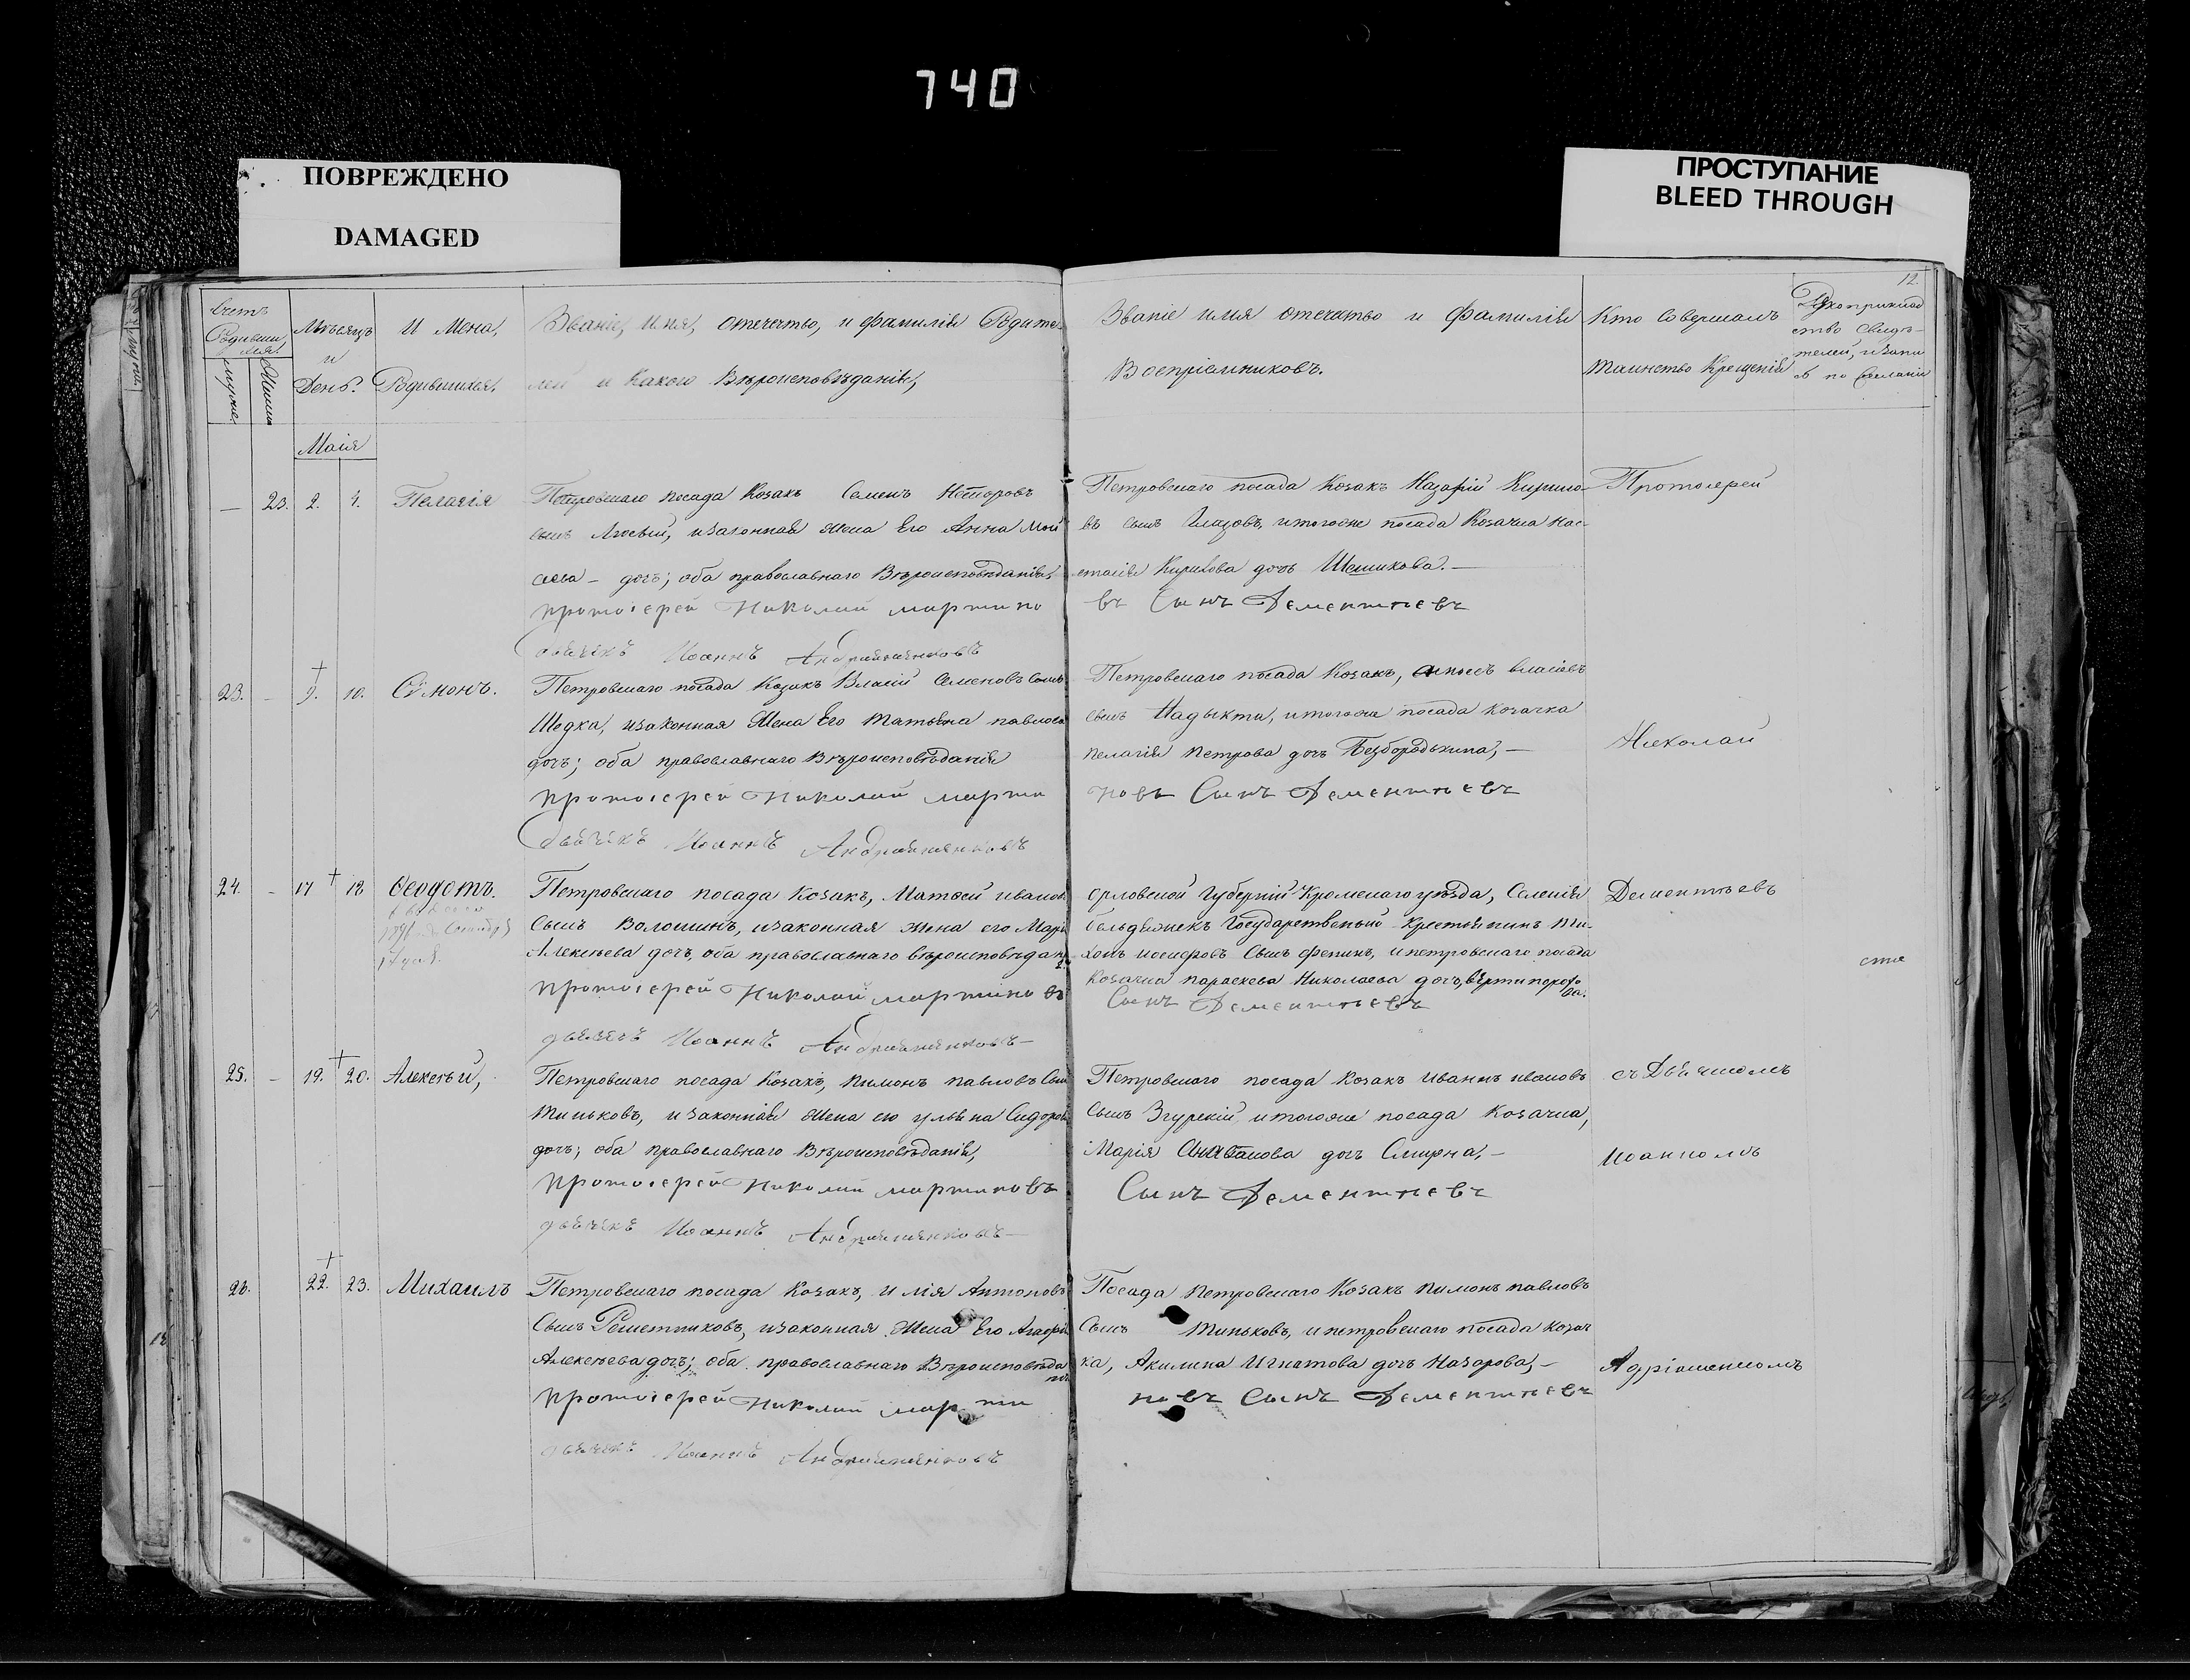 740
ПОВРЕЖДЕНО
DAMAGED
ПРОСТУПАНИЕ
BLEED THROUGH
12.
Счетъ
Родивши
Мѣсяцъ
и
День.
Имена,
Родившихся.
Званіе, Имя, отечество, и фамилія Родите-
лей и какого Вѣроисповѣданія,
Званіе имя отечество и фамилія
Воспріемниковъ.
Кто Совершалъ
таинство Крещенія
Маія
23. 2. 4. Пелагія
Петровскаго посада Козакъ Семенъ Несторовъ
сынъ изаконная жена Его Анна Мой
сеева – дочь; оба православнаго Вѣроисповѣданія,
протоіерей Николай мартино
дьячекъ Иоаннъ
Петровскаго посада Козакъ Назарій Кирило-
въ сынъ Глазовъ, итогоже посада Козачка Нас-
тасія Кирилова дочь Шешикова. –
въ Сынъ Дементьевъ
Протоіерей
23. – 9. 10. Сѵмонъ.
Петровскаго посада Козакъ Власій Семеновъ Сынъ
Шедка, изаконная Жена Его Татьяна павлова
дочь; оба православнаго Вѣроисповѣданія
протоіерей Николай марти
дьячекъ Иоаннъ
Петровскаго посада Козакъ, власіевъ
сынъ итогоже посада козачка
пелагія Петрова дочь Безбородькина, –
новъ Сынъ Дементьевъ
Николай
24. – 17 18 Ѳеодотъ.
Петровскаго посада Козакъ, Матвей иванов
Сынъ Волошинъ, изаконная жена его Марі
Алексѣева дочь, оба православнаго вѣроисповѣдан
протоіерей Николай мартіновъ
дьячекъ Иоаннъ
орловской Губерній Кромскаго уѣзда, Селенія
Государственый Крестьянинъ Ти-
хонъ иосифовъ Сынъ фенинъ, ипетровскаго посада
Козачка параскева Николаева дочь,
Сынъ Дементьевъ
Дементьевъ
25. – 19. 20. Алексѣй,
Петровскаго посада Козакъ, пимонъ павловъ Сын
Тиньковъ, изаконная Жена его ульяна Сидоров
дочь; оба православнаго Вѣроисповѣданія,
протоіерей Николай мартиновъ
дьячекъ Иоаннъ
Петровскаго посада Козакъ Иванъ ивановъ
Сынъ Згурскій, итогоже посада Козачка,
Марія дочь Смирна, –
Сынъ Дементьевъ
съ Дьячкомъ
Иоанномъ
26. 22. 23. Михаилъ
Петровскаго посада Козакъ, илія Антоновъ
Сынъ Решетниковъ, изаконная Жена Его Агафі
Алексѣева дочь; оба православнаго Вѣроисповѣда
протоіерей Николай марти
дьячекъ Иоаннъ
Посада петровскаго Козакъ пимонъ павловъ
Сынъ Тиньковъ, ипетровскаго посада козач
ка, Акилина Игнатова дочь Назарова, –
новъ Сынъ Дементьевъ